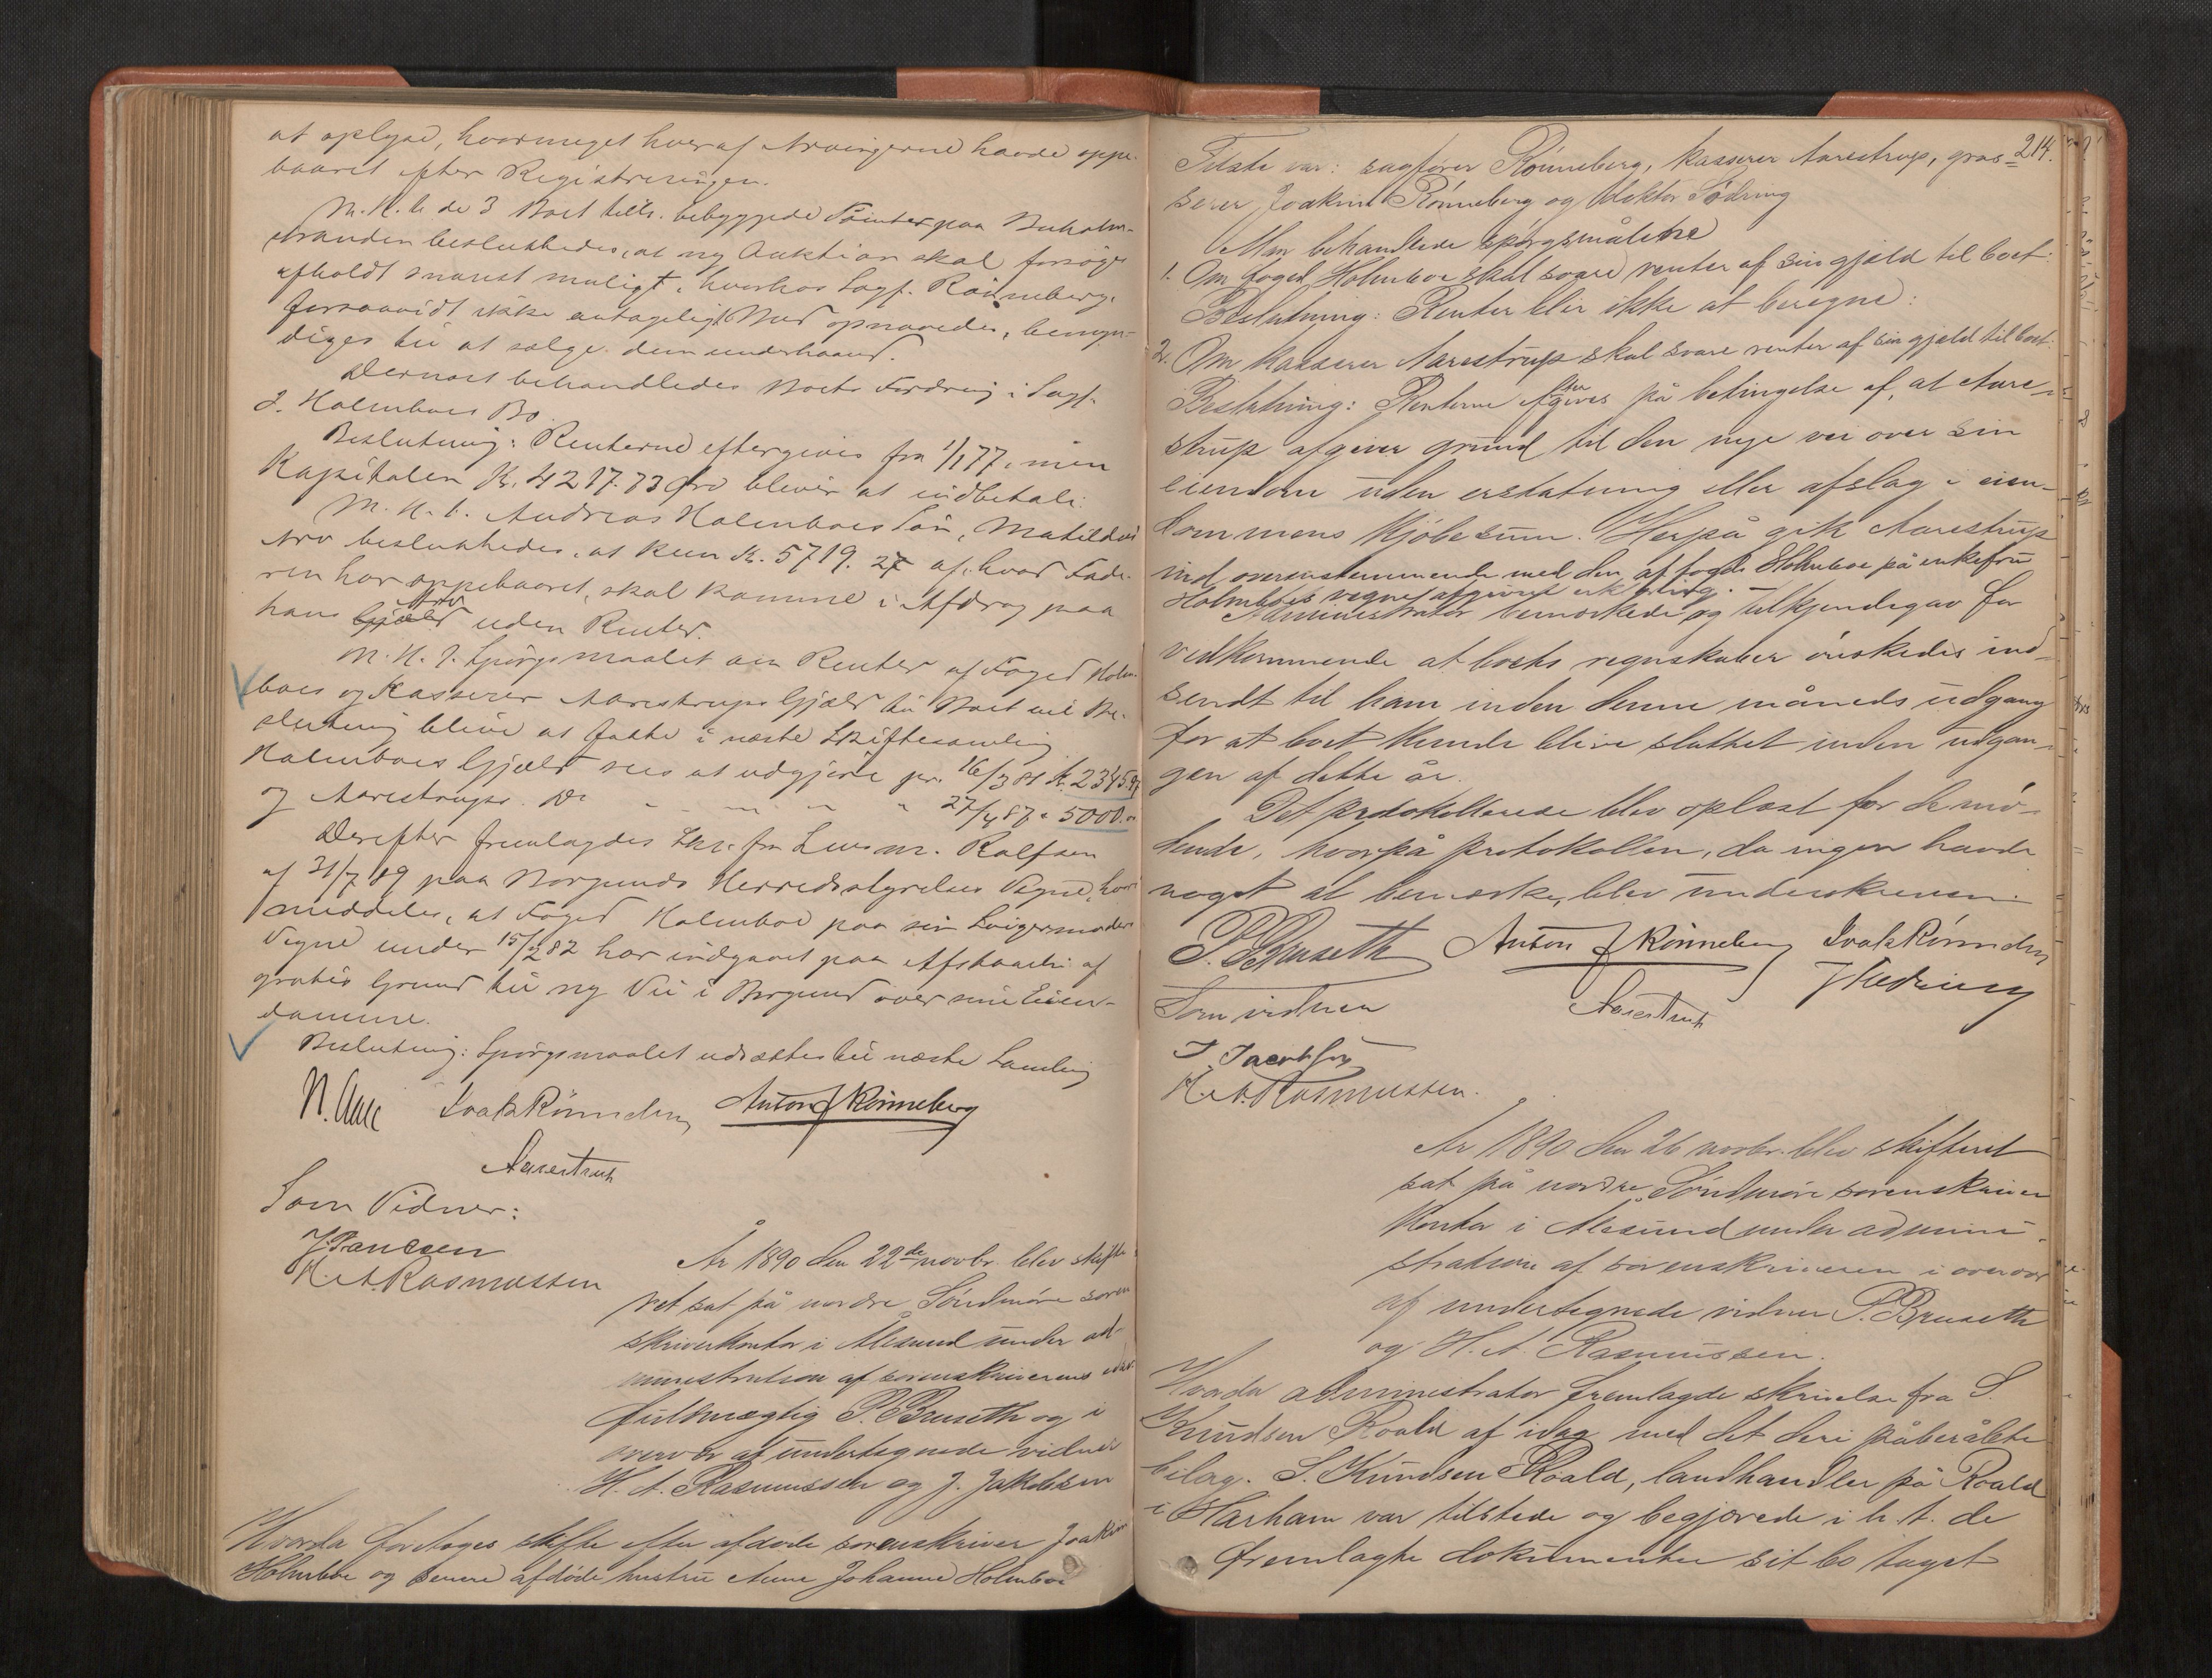 at oplyse, hvormeget hver af Arvingerne havde oppe-
baaret efter Registreringen.
M. H. t. de 3 Boet tilh. bebyggede Tomter paa Buholm-
stranden besluttedes, at ny Auktion skal forsøges
afholdt snarest muligt, hvorhos Sagf. Rønneberg,
forsaavidt ikke antageligt Bud opnaaedes, bemyn-
diges til at sælge dem underhaand.
Dernæst behandledes Boets Fordring i Sagf.
J. Holmboes Bo.
Beslutning: Renterne eftergives fra 1/1 77, men
Kapitalen Kr. 4217.73 Øre bliver at indbetale.
M. H. t. Andreas Holmboes Søn, Matildus
Arv besluttedes, at kun Kr. 5719. 27 af, hvad Fade-
ren har oppebaaret, skal komme i Afdrag paa
hans Arv uden Renter.
M. H. t. Spørgsmaalet om Renter af Foged Holm-
boes og Kasserer Aarestrups Gjæld til Boet vil Be-
slutning blive at fatte i næste Skiftesamling
Holmboes Gjæld sees at udgjøre pr. 16/3 81 Kr. 2345.
og Aarestrups Do " " " 27/4 87 " 5000. "
Derefter fremlagdes Skr. fra Lensm. Rolfsen
af 31/7 89 paa Borgunds Herredsstyrelses Vegne, hvori
meddeles, at Foged Holmboe paa sin Svigermoders
Vegne under 15/2 82 har indgaaet paa Afstaaelse af
gratis Grund til ny Vei i Borgund over sine Eien-
domme.
Beslutning: Spørgsmaalet udsættes til næste Samling
N. Aase Joak Rønneberg Anton J Rønneberg
Aarestrup
Som Vidner:
J. Paulsen
H. A. Rasmussen
År 1890 den 22de novbr. blev skifte-
ret sat på nordre Søndmøre soren-
skriverkontor i Ålesund under ad-
ministration af sorenskriverens
fuldmægtig P. Bruseth og i
overvær af undertegnede vidner
H. A. Rasmussen og J. Jakobsen
Hvorda foretoges skifte efter afdøde sorenskriver Joakim
Holmboe og senere afdøde hustru Anne Johanne Holmboe
214.
Tilstede var: sagfører Rønneberg, kasserer Aarestrup, gros-
serer Joakim Rønneberg og doktor Sødring
Man behandlede spørgsmålene
1. Om foged Holmboe skal svare renter af sin gjæld til boet:
Beslutning: Renter blir ikke at beregne:
2. Om kasserer Aarestrup skal svare renter af sin gjæld til boet:
Beslutning: Renterne eftergives på betingelse af, at Aare-
strup afgiver grund til den nye vei over sin
eiendom uden erstatning eller afslag i eien-
dommens kjøbesum. Herpå gik Aarestrup
ind overensstemmende med den af foged Holmboe på enkefru
Holmboes vegne afgivne erklæring.
Administrator bemærkede og tilkjendegav for
vedkommende at boets regnskaber ønskedes ind-
sendt til ham inden denne måneds udgang
for at boet kunde blive sluttet inden udgan-
gen af dette år.
Det protokollerede blev oplæst for de mø-
dende, hvorpå protokollen, da ingen havde
noget at bemærke, blev underskreven.
P. Bruseth Anton J Rønneberg Joak Rønneberg
Som vidner Aarestrup J Sødring
J. Jacobsen
H. A. Rasmussen.
År 1890 den 26 novbr. blev skifteret
sat på nordre Søndmøre sorenskriver
kontor i Ålesund under admini-
stration af sorenskriveren i overvær
af undertegnede vidner P. Bruseth
og H. A. Rasmussen.
Hvorda administrator fremlagde skrivelse fra S.
Knudsen Roald af idag med det deri påberåbte
bilag. S. Knudsen Roald, landhandler på Roald
i Harham var tilstede og begjærede i h. t. de
fremlagte dokumenter sit bo taget